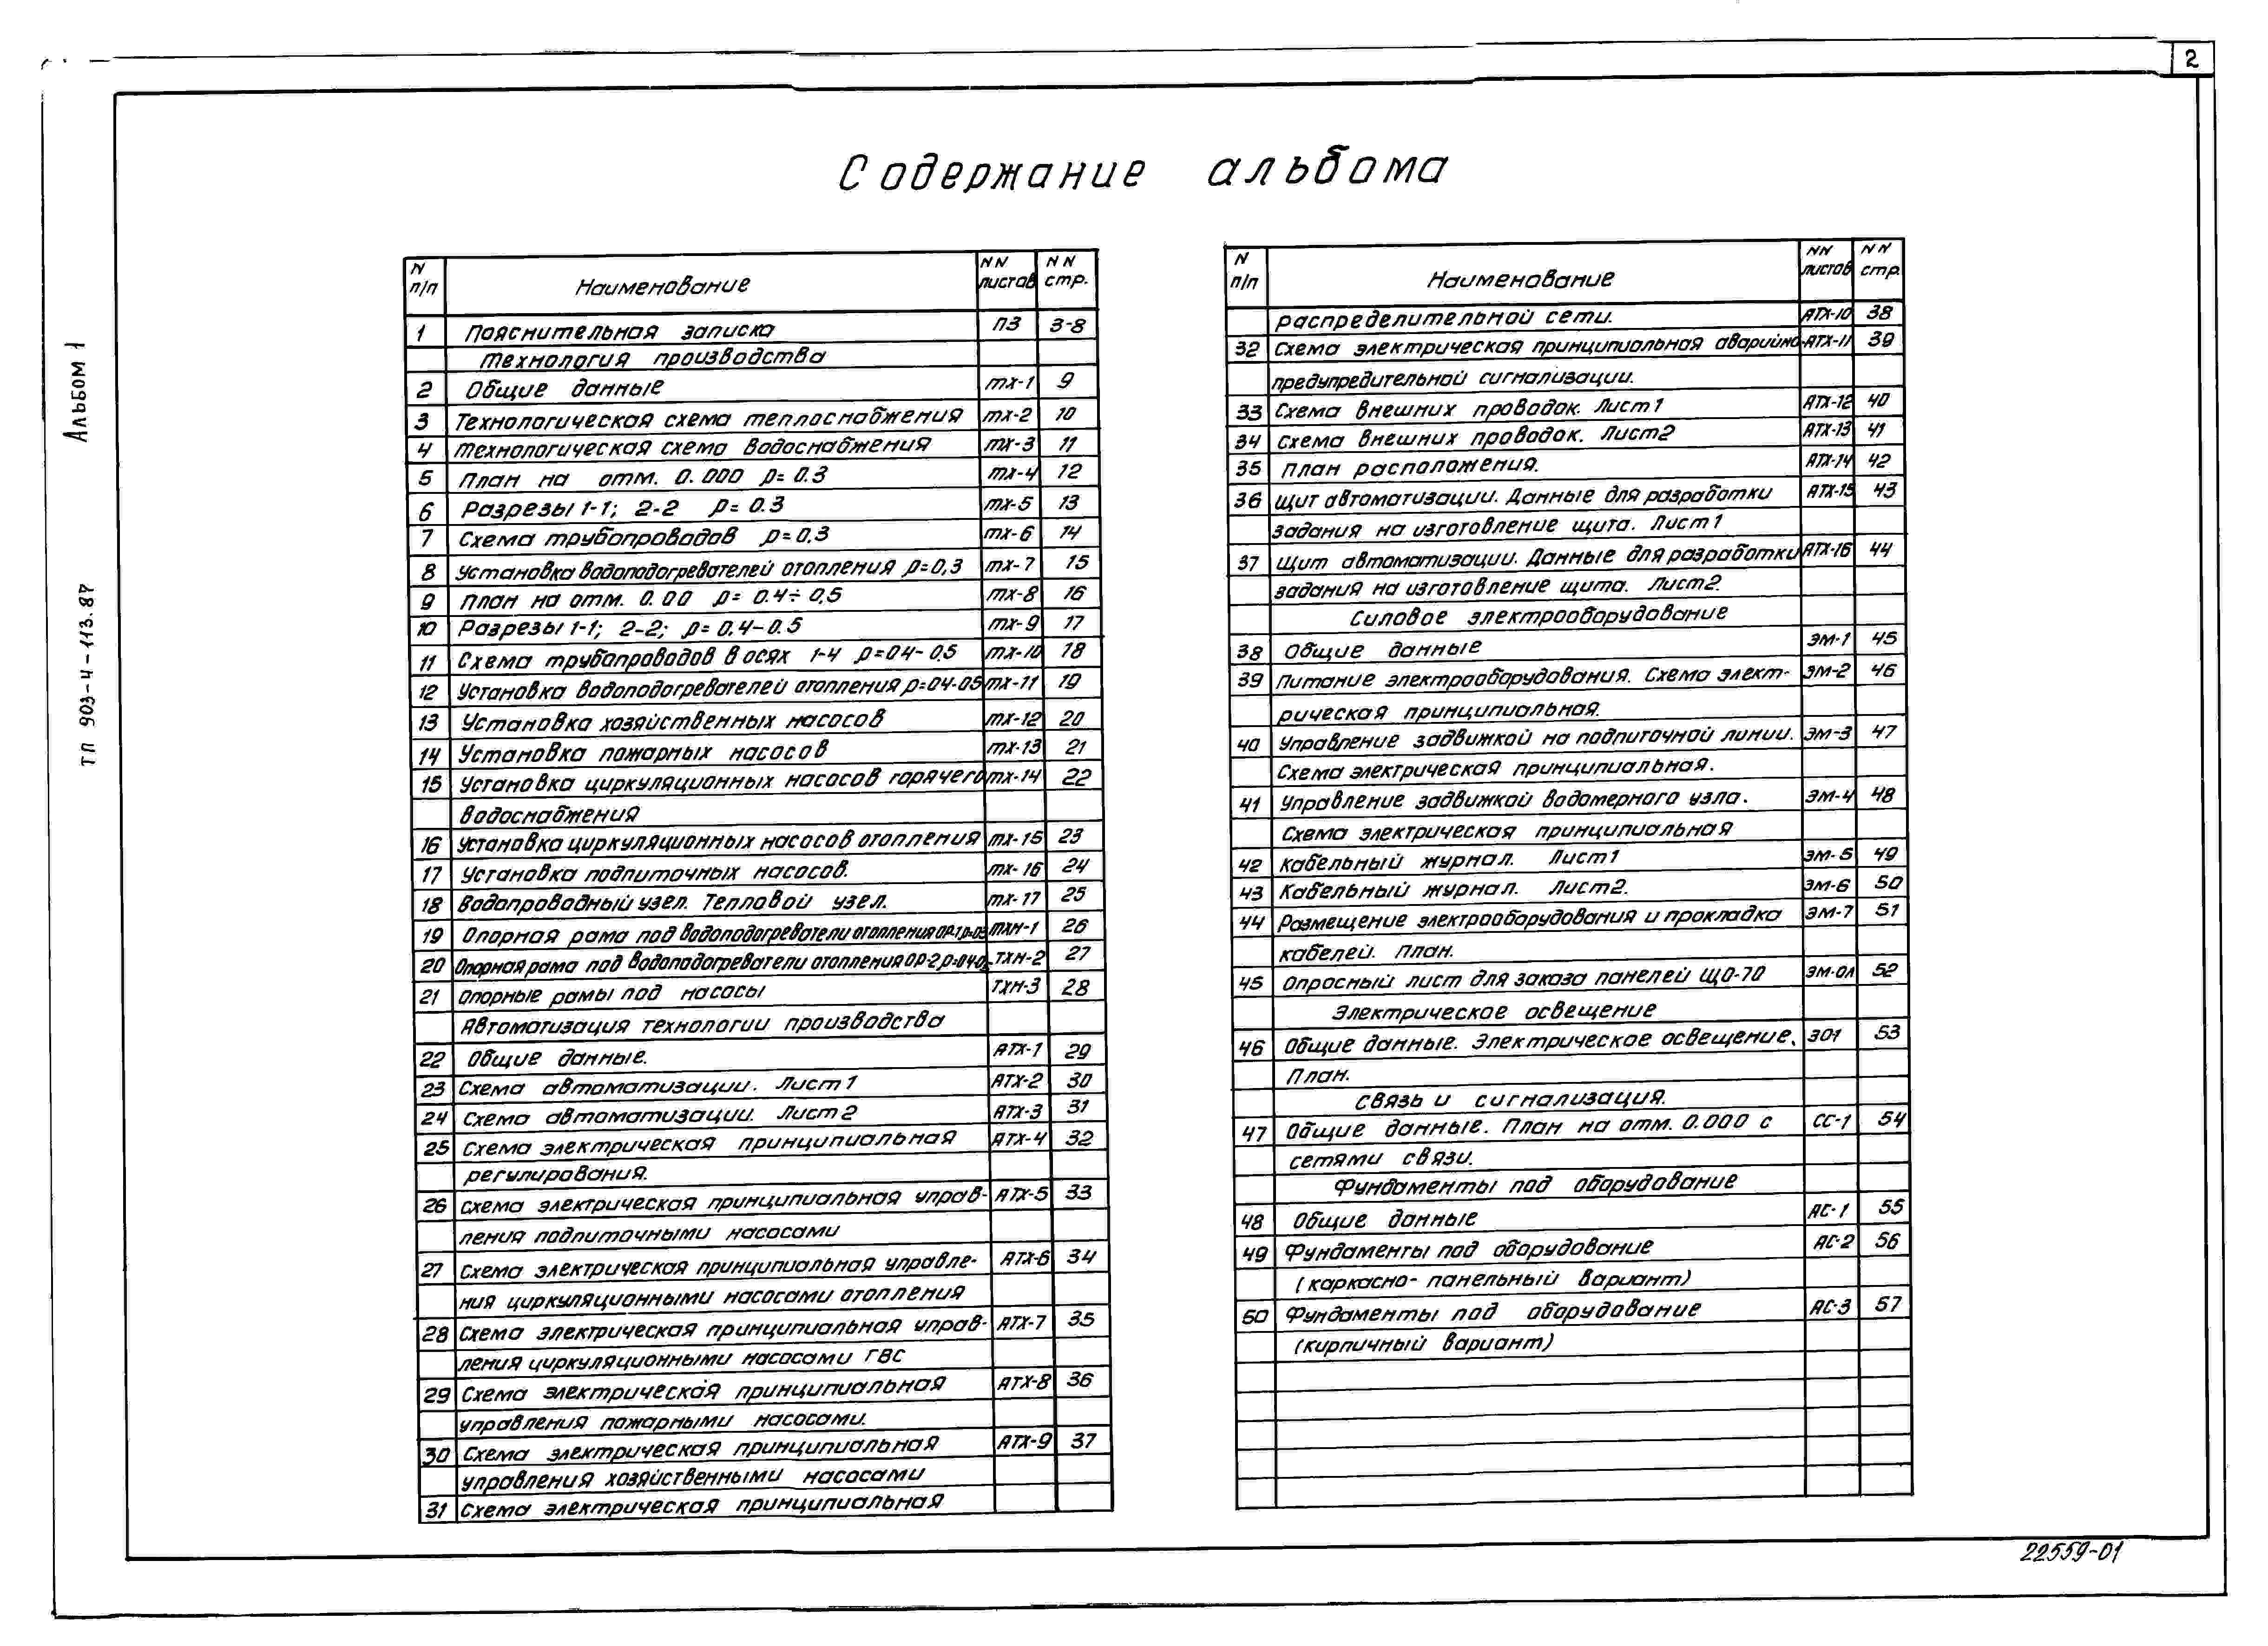 2
Содержание альбома
Альбом 1
ТП 903-4-113.87
N п/п Наименование NN листов NN стр.
1 Пояснительная записка ПЗ 3-8
Технология производства
2 Общие данные ТХ-1 9
3 Технологическая схема теплоснабжения ТХ-2 10
4 Технологическая схема водоснабжения ТХ-3 11
5 План на отм. 0.000 р=0.3 ТХ-4 12
6 Разрезы 1-1; 2-2 р=0.3 ТХ-5 13
7 Схема трубопроводов р=0,3 ТХ-6 14
8 Установка водоподогревателей отопления р=0,3 ТХ-7 15
9 План на отм. 0.00 р=0.4÷0,5 ТХ-8 16
10 Разрезы 1-1; 2-2; р=0.4-0.5 ТХ-9 17
11 Схема трубопроводов в осях 1-4 р=04-0.5 ТХ-10 18
12 Установка водоподогревателей отопления р=04-05 ТХ-11 19
13 Установка хозяйственных насосов ТХ-12 20
14 Установка пожарных насосов ТХ-13 21
15 Установка циркуляционных насосов горячего ТХ-14 22
водоснабжения
16 Установка циркуляционных насосов отопления ТХ-15 23
17 Установка подпиточных насосов. ТХ-16 24
18 Водопроводный узел. Тепловой узел. ТХ-17 25
19 Опорная рама под водоподогреватели отопления ОР-1 р=03 ТХН-1 26
20 Опорная рама под водоподогреватели отопления ОР-2 ТХН-2 27
21 Опорные рамы под насосы ТХН-3 28
Автоматизация технологии производства
22 Общие данные. АТХ-1 29
23 Схема автоматизации. Лист 1 АТХ-2 30
24 Схема автоматизации. Лист 2 АТХ-3 31
25 Схема электрическая принципиальная АТХ-4 32
регулирования.
26 Схема электрическая принципиальная управ- АТХ-5 33
ления подпиточными насосами
27 Схема электрическая принципиальная управле- АТХ-6 34
ния циркуляционными насосами отопления
28 Схема электрическая принципиальная управ- АТХ-7 35
ления циркуляционными насосами ГВС
29 Схема электрическая принципиальная АТХ-8 36
управления пожарными насосами.
30 Схема электрическая принципиальная АТХ-9 37
управления хозяйственными насосами
31 Схема электрическая принципиальная
N п/п Наименование NN листов NN стр.
распределительной сети. АТХ-10 38
32 Схема электрическая принципиальная аварийно- АТХ-11 39
предупредительной сигнализации.
33 Схема внешних проводок. Лист 1 АТХ-12 40
34 Схема внешних проводок. Лист 2 АТХ-13 41
35 План расположения. АТХ-14 42
36 Щит автоматизации. Данные для разработки АТХ-15 43
задания на изготовление щита. Лист 1
37 Щит автоматизации. Данные для разработки АТХ-16 44
задания на изготовление щита. Лист 2.
Силовое электрооборудование
38 Общие данные ЭМ-1 45
39 Питание электрооборудования. Схема элект- ЭМ-2 46
рическая принципиальная.
40 Управление задвижкой на подпиточной линии. ЭМ-3 47
Схема электрическая принципиальная.
41 Управление задвижкой водомерного узла. ЭМ-4 48
Схема электрическая принципиальная
42 Кабельный журнал. Лист 1 ЭМ-5 49
43 Кабельный журнал. Лист 2. ЭМ-6 50
44 Размещение электрооборудования и прокладка ЭМ-7 51
кабелей. План.
45 Опросный лист для заказа панелей ЩО-70 ЭМ-ОЛ 52
Электрическое освещение
46 Общие данные. Электрическое освещение. ЭО1 53
План.
Связь и сигнализация.
47 Общие данные. План на отм. 0.000 с СС-1 54
сетями связи.
Фундаменты под оборудование
48 Общие данные АС-1 55
49 Фундаменты под оборудование АС-2 56
(каркасно-панельный вариант)
50 Фундаменты под оборудование АС-3 57
(кирпичный вариант)
22559-01